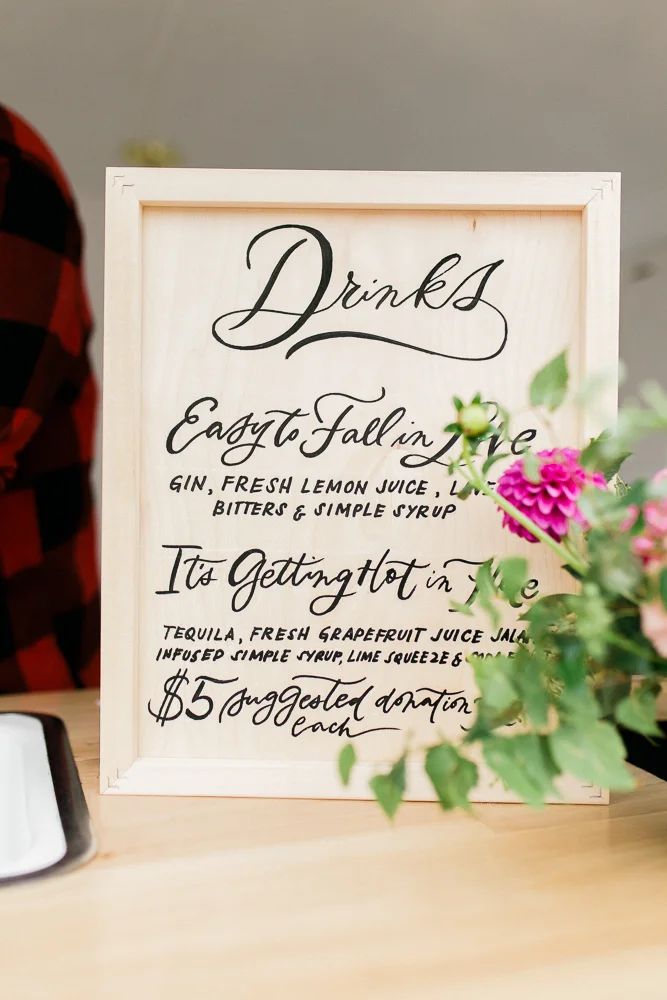 Drinks
Easy to Fall in Love
GIN, FRESH LEMON JUICE,
BITTERS & SIMPLE SYRUP
It's Getting Hot in
TEQUILA, FRESH GRAPEFRUIT JUICE
INFUSED SIMPLE SYRUP, LIME SQUEEZE &
$5 suggested donation
each